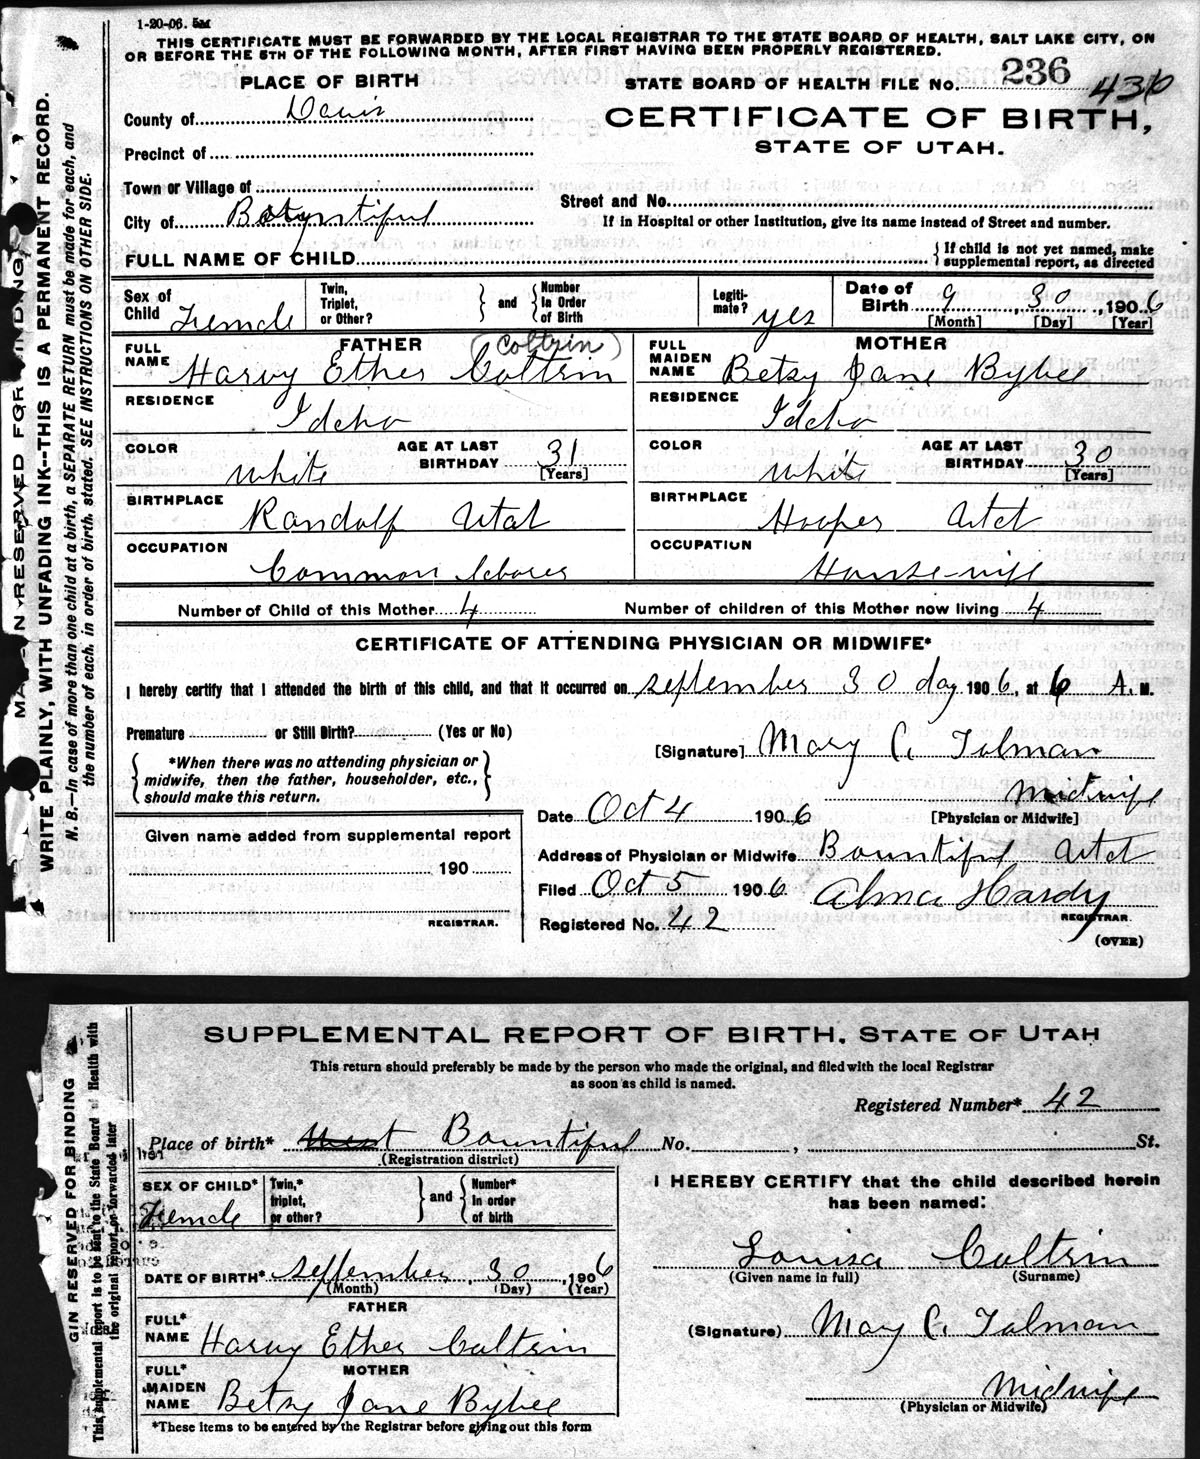 1-20-06. 5M
THIS CERTIFICATE MUST BE FORWARDED BY THE LOCAL REGISTRAR TO THE STATE BOARD OF HEALTH, SALT LAKE CITY, ON
OR BEFORE THE 5TH OF THE FOLLOWING MONTH, AFTER FIRST HAVING BEEN PROPERLY REGISTERED.
PLACE OF BIRTH
STATE BOARD OF HEALTH FILE No. 236
County of Davis
CERTIFICATE OF BIRTH,
STATE OF UTAH.
Precinct of
Town or Village of
Street and No.
City of Bountiful
If in Hospital or other Institution, give its name instead of Street and number.
FULL NAME OF CHILD {If child is not yet named, make supplemental report, as directed
Sex of Child Female Twin, Triplet, or Other? } and { Number In Order of Birth Legiti-mate? yes Date of Birth 9, 30, 1906
[Month] [Day] [Year]
FATHER (Coltrin) MOTHER
FULL NAME Harvy Ether Coltrin FULL MAIDEN NAME Betsy Jane Bybee
RESIDENCE Idaho RESIDENCE Idaho
COLOR White AGE AT LAST BIRTHDAY 31 [Years] COLOR White AGE AT LAST BIRTHDAY 30 [Years]
BIRTHPLACE Randolf Utah BIRTHPLACE Hooper Utah
OCCUPATION Common laborer OCCUPATION House-wife
Number of Child of this Mother 4 Number of children of this Mother now living 4
CERTIFICATE OF ATTENDING PHYSICIAN OR MIDWIFE*
I hereby certify that I attended the birth of this child, and that it occurred on september 30 day 1906, at 6 A. M.
Premature or Still Birth? (Yes or No)
[Signature] Mary C. Tolman
*When there was no attending physician or
midwife, then the father, householder, etc.,
should make this return.
Midwife
[Physician or Midwife]
Date Oct 4 1906
Given name added from supplemental report
190
REGISTRAR.
Address of Physician or Midwife Bountiful Utah
Filed Oct 5 1906 Alma Hardy
REGISTRAR.
Registered No. 42
(OVER)
RESERVED FOR BINDING
WRITE PLAINLY, WITH UNFADING INK--THIS IS A PERMANENT RECORD.
N. B.—In case of more than one child at a birth, a SEPARATE RETURN must be made for each, and
the number of each, in order of birth, stated. SEE INSTRUCTIONS ON OTHER SIDE.
SUPPLEMENTAL REPORT OF BIRTH, STATE OF UTAH
This return should preferably be made by the person who made the original, and filed with the local Registrar
as soon as child is named.
Registered Number* 42
Place of birth* West Bountiful No. , St.
(Registration district)
SEX OF CHILD* Female Twin,* triplet, or other? } and { Number* In order of birth
I HEREBY CERTIFY that the child described herein
has been named:
Louisa Coltrin
(Given name in full) (Surname)
DATE OF BIRTH* september, 30, 1906
(Month) (Day) (Year)
FATHER
FULL* NAME Harvy Ether Coltrin
(Signature) Mary C. Tolman
MOTHER
FULL* MAIDEN NAME Betsy Jane Bybee
Midwife
(Physician or Midwife)
*These items to be entered by the Registrar before giving out this form
GIN RESERVED FOR BINDING
This supplemental report is to be sent to the State Board of Health with
the original report, or forwarded later